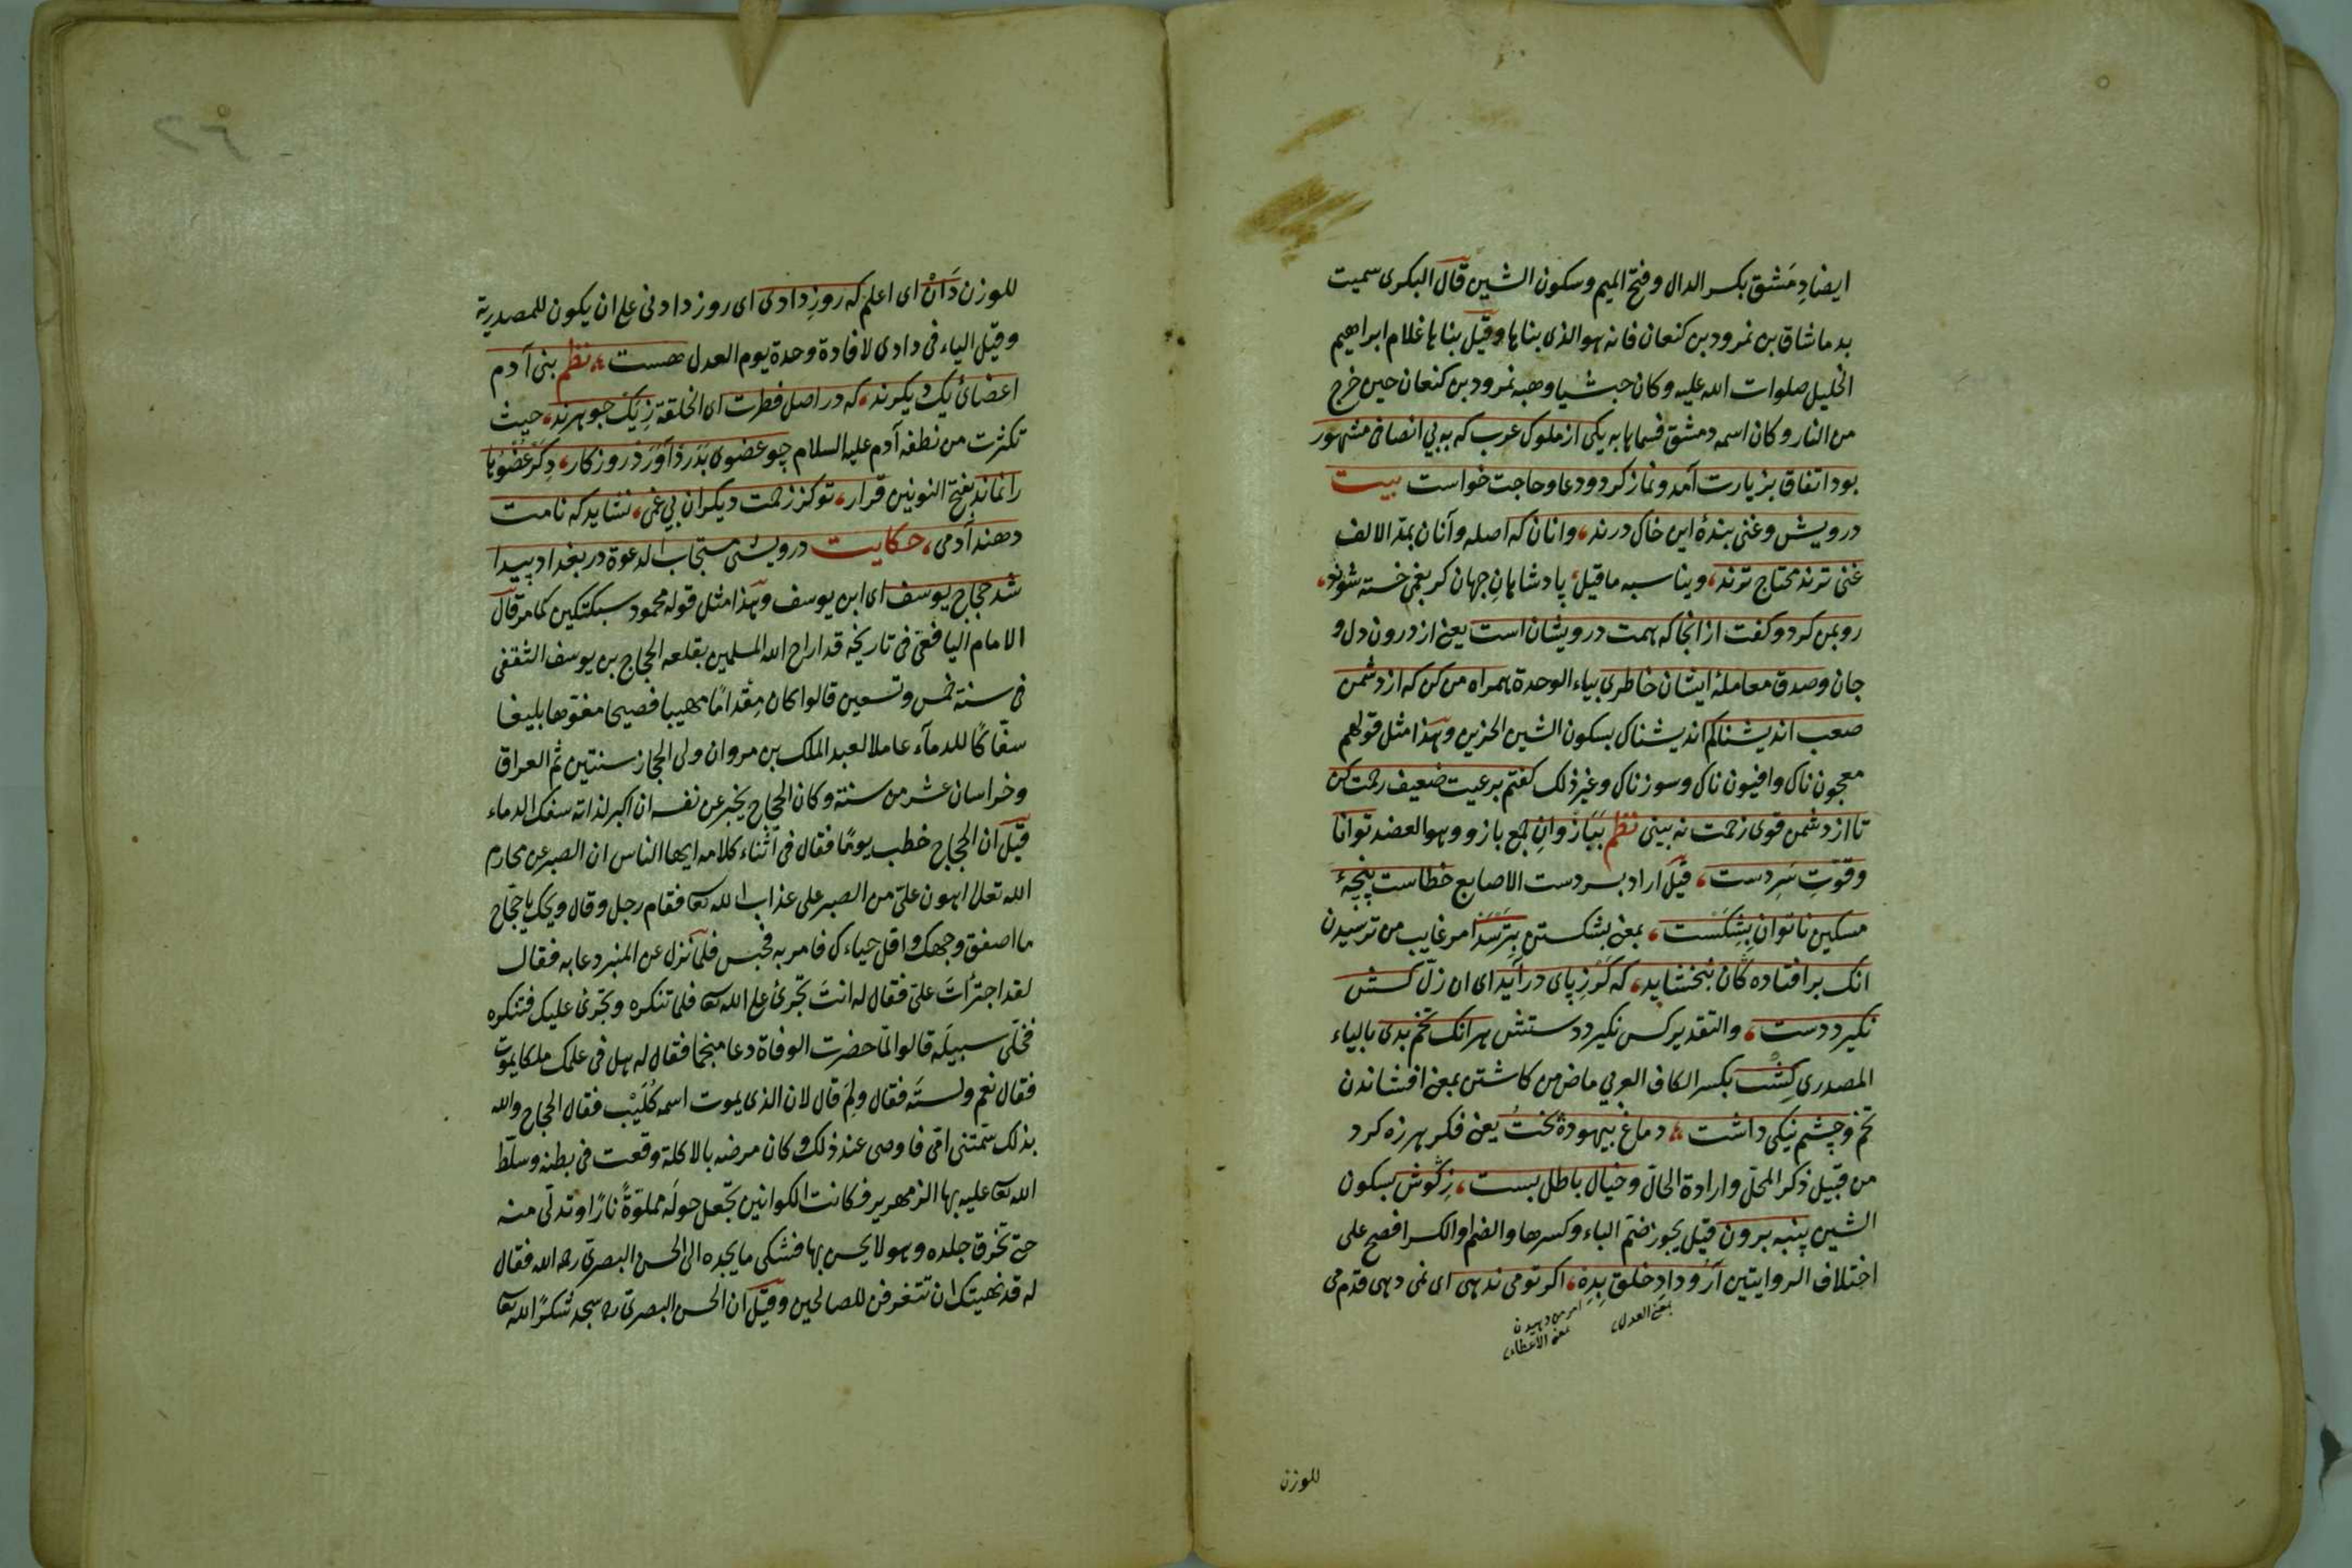 ايضا دِمَشق بكسر الدال وفتح الميم وسكون الشين قال البكرى سميت
بدماشاق بن نمرود بن كنعان فانه هو الذى بناها وقيل بناها غلام ابراهيم
الخليل صلوات الله عليه وكان حبشيا وهبه نمرود بن كنعان حين خرج
من النار وكان اسمه دمشق فسماها به يكى از ملوك عرب كه به بى انصافى مشهور
بود اتفاق بزيارت آمد ونماز كرد ودعا وحاجت خواست بيت
درويش وغنى بندۀ اين خاك درند، وانان كه اصله وآنان بمد الالف
غنى ترند محتاج ترند، ويناسبه ما قيل پادشاهانِ جهان كر بغمى خسته شوند،
رو بمن كرد وكفت از انجا كه همت درويشان است يعنى از درون دل و
جان وصدق معاملۀ ايشان خاطرى بياء الوحدة همراه من كن كه از دشمن
صعب انديشناكم انديشناك بسكون الشين الحزين وهذا مثل قولهم
معجون ناك وافيون ناك وسوزناك وغير ذلك كفتم بر عيت ضعيف رحمت كن
تا از دشمن قوى زحمت نه بينى نظم ببَازُوانِ جمع بازو وهو العضد توانا
وقوّتِ سَرِ دست، قيل اراد بسر دست الاصابع خطاست پنجۀ
مسكين ناتوان بِشِكَسْت، بمعنى بشكستن بِتَرْسَدْ امر غايب من ترسيدن
انك بر افتاده كان نبخشايد، كه كَرْ زِپاى در آيد اى ان زلّ كسش
نكيرد دست، والتقدير كس نكيرد دستش هر انك تخم بدى بالياء
المصدرى كِشْت بكسر الكاف العربي ماض من كاشتن بمعنى افشاندن
تخم وچشم نيكى داشت، دماغ بيهوده پخت يعنى فكر هرزه كرد
من قبيل ذكر المحلّ وارادة الحالّ وخيال باطل بست، زِكُوش بسكون
الشين پنبه برون قيل يجوز ضم الباء وكسرها والضم او الكسر افصح على
اختلاف الروايتين آرْ ودادِ خلق بِدِه، اكر تو مى ندهى اى نمى دهى قدم مى
بمعنى العدل
امر من دهيدن
بمعنى الاعطاء
للوزن
للوزن دَانْ اى اعلم كه روزِ دادى اى روز دادنى على ان يكون للمصدرية
وقيل الياء فى دادى لافادة وحدة يوم العدل هست، نظم بنى آدم
اعضاى يك ديكرند، كه در اصل فطرت اى الخلقة زِيَكْ جوهرند، حيث
تكثرت من نطفه آدم عليه السلام چو عضوى بَدَرد آوَرَدْ روزكار، دِكَرْ عُضْوْها
را نماند بفتح النونين قرار، تو كز زحمت ديكران بى غمى، نشايد كه نامت
دهند آدمى، حكايت درويشى مستجاب الدعوة در بغداد پيدا
شد حجاج يوسف اى ابن يوسف وهذا مثل قوله محمود سبكتكين كما مر قال
الامام اليافعى فى تاريخه قد اراح الله المسلمين بقلعه الحجاج بن يوسف الثقفى
فى سنة خمس وتسعين قالوا كان مِقْدامًا مهيبا فصيحا مفوّها بليغا
سفّاكًا للدمآء عاملا لعبد الملك بن مروان ولى الحجاز سنتين ثم العراق
وخراسان عشرين سنة وكان الحجاج يخبر عن نفسه ان اكبر لذاته سفك الدماء
قيل ان الحجاج خطب يومًا فقال فى اثناء كلامه ايها الناس ان الصبر عن محارم
الله تعالى اهون علىّ من الصبر على عذاب الله تعا فقام رجل وقال ويحك يا حجّاج
ما اصفق وجهك واقل حياءك فامر به فحبس فلما نزل عن المنبر دعا به فقال
لقد اجترأتَ علىّ فقال له انت تجرئ على الله تعا فلما تنكره وتجرئ عليك فتنكره
فخلّى سبيلَه قالوا لمّا حضرت الوفاة دعا منجّما فقال له هل فى علمك ملكا يموت
فقال نعم ولستَه فقال ولِمَ قال لان الذى يموت اسمه كُلَيْب فقال الحجاج والله
بذلك سمّتنى امّى فاوصى عند ذلك وكان مرضه بالاكلة وقعت فى بطنه وسلّط
الله تعا عليه بها الزمهرير فكانت الكوانين تجعل حولَه مملوّةً نارًا وتدلّى منه
حتى تحرق جلده وهو لا يحس بها فشكى ما يجده الى الحسن البصرى رحمه الله فقال
له قد نهيتك ان تتغرفن للصالحين وقيل ان الحسن البصرى ره سجد شكرًا لله تعا